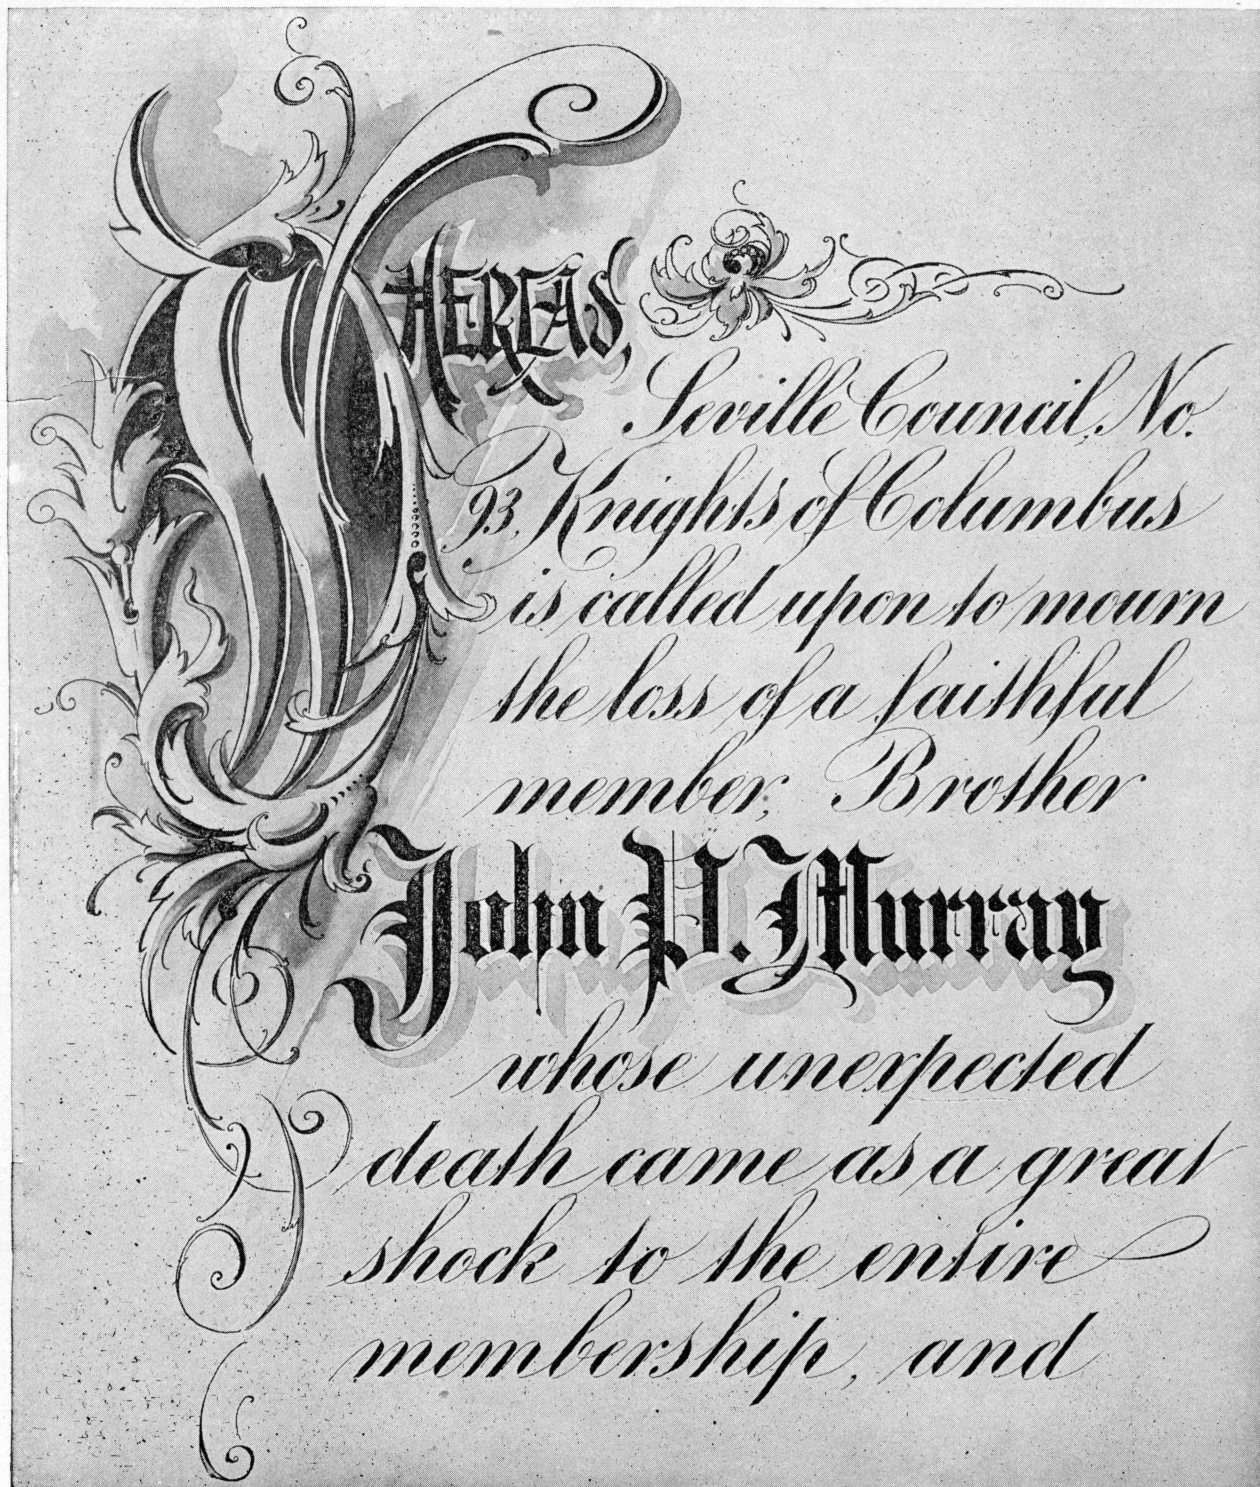 WHEREAS,
Seville Council, No.
93, Knights of Columbus
is called upon to mourn
the loss of a faithful
member, Brother
John P. Murray
whose unexpected
death came as a great
shock to the entire
membership, and